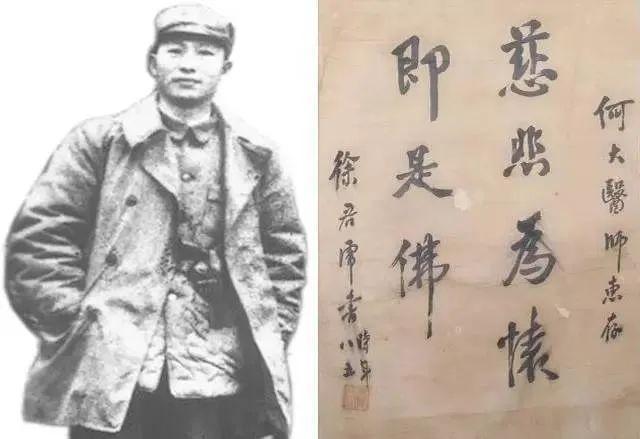 何大醫師惠存
慈悲為懷
即是佛
徐君虎書時年八五